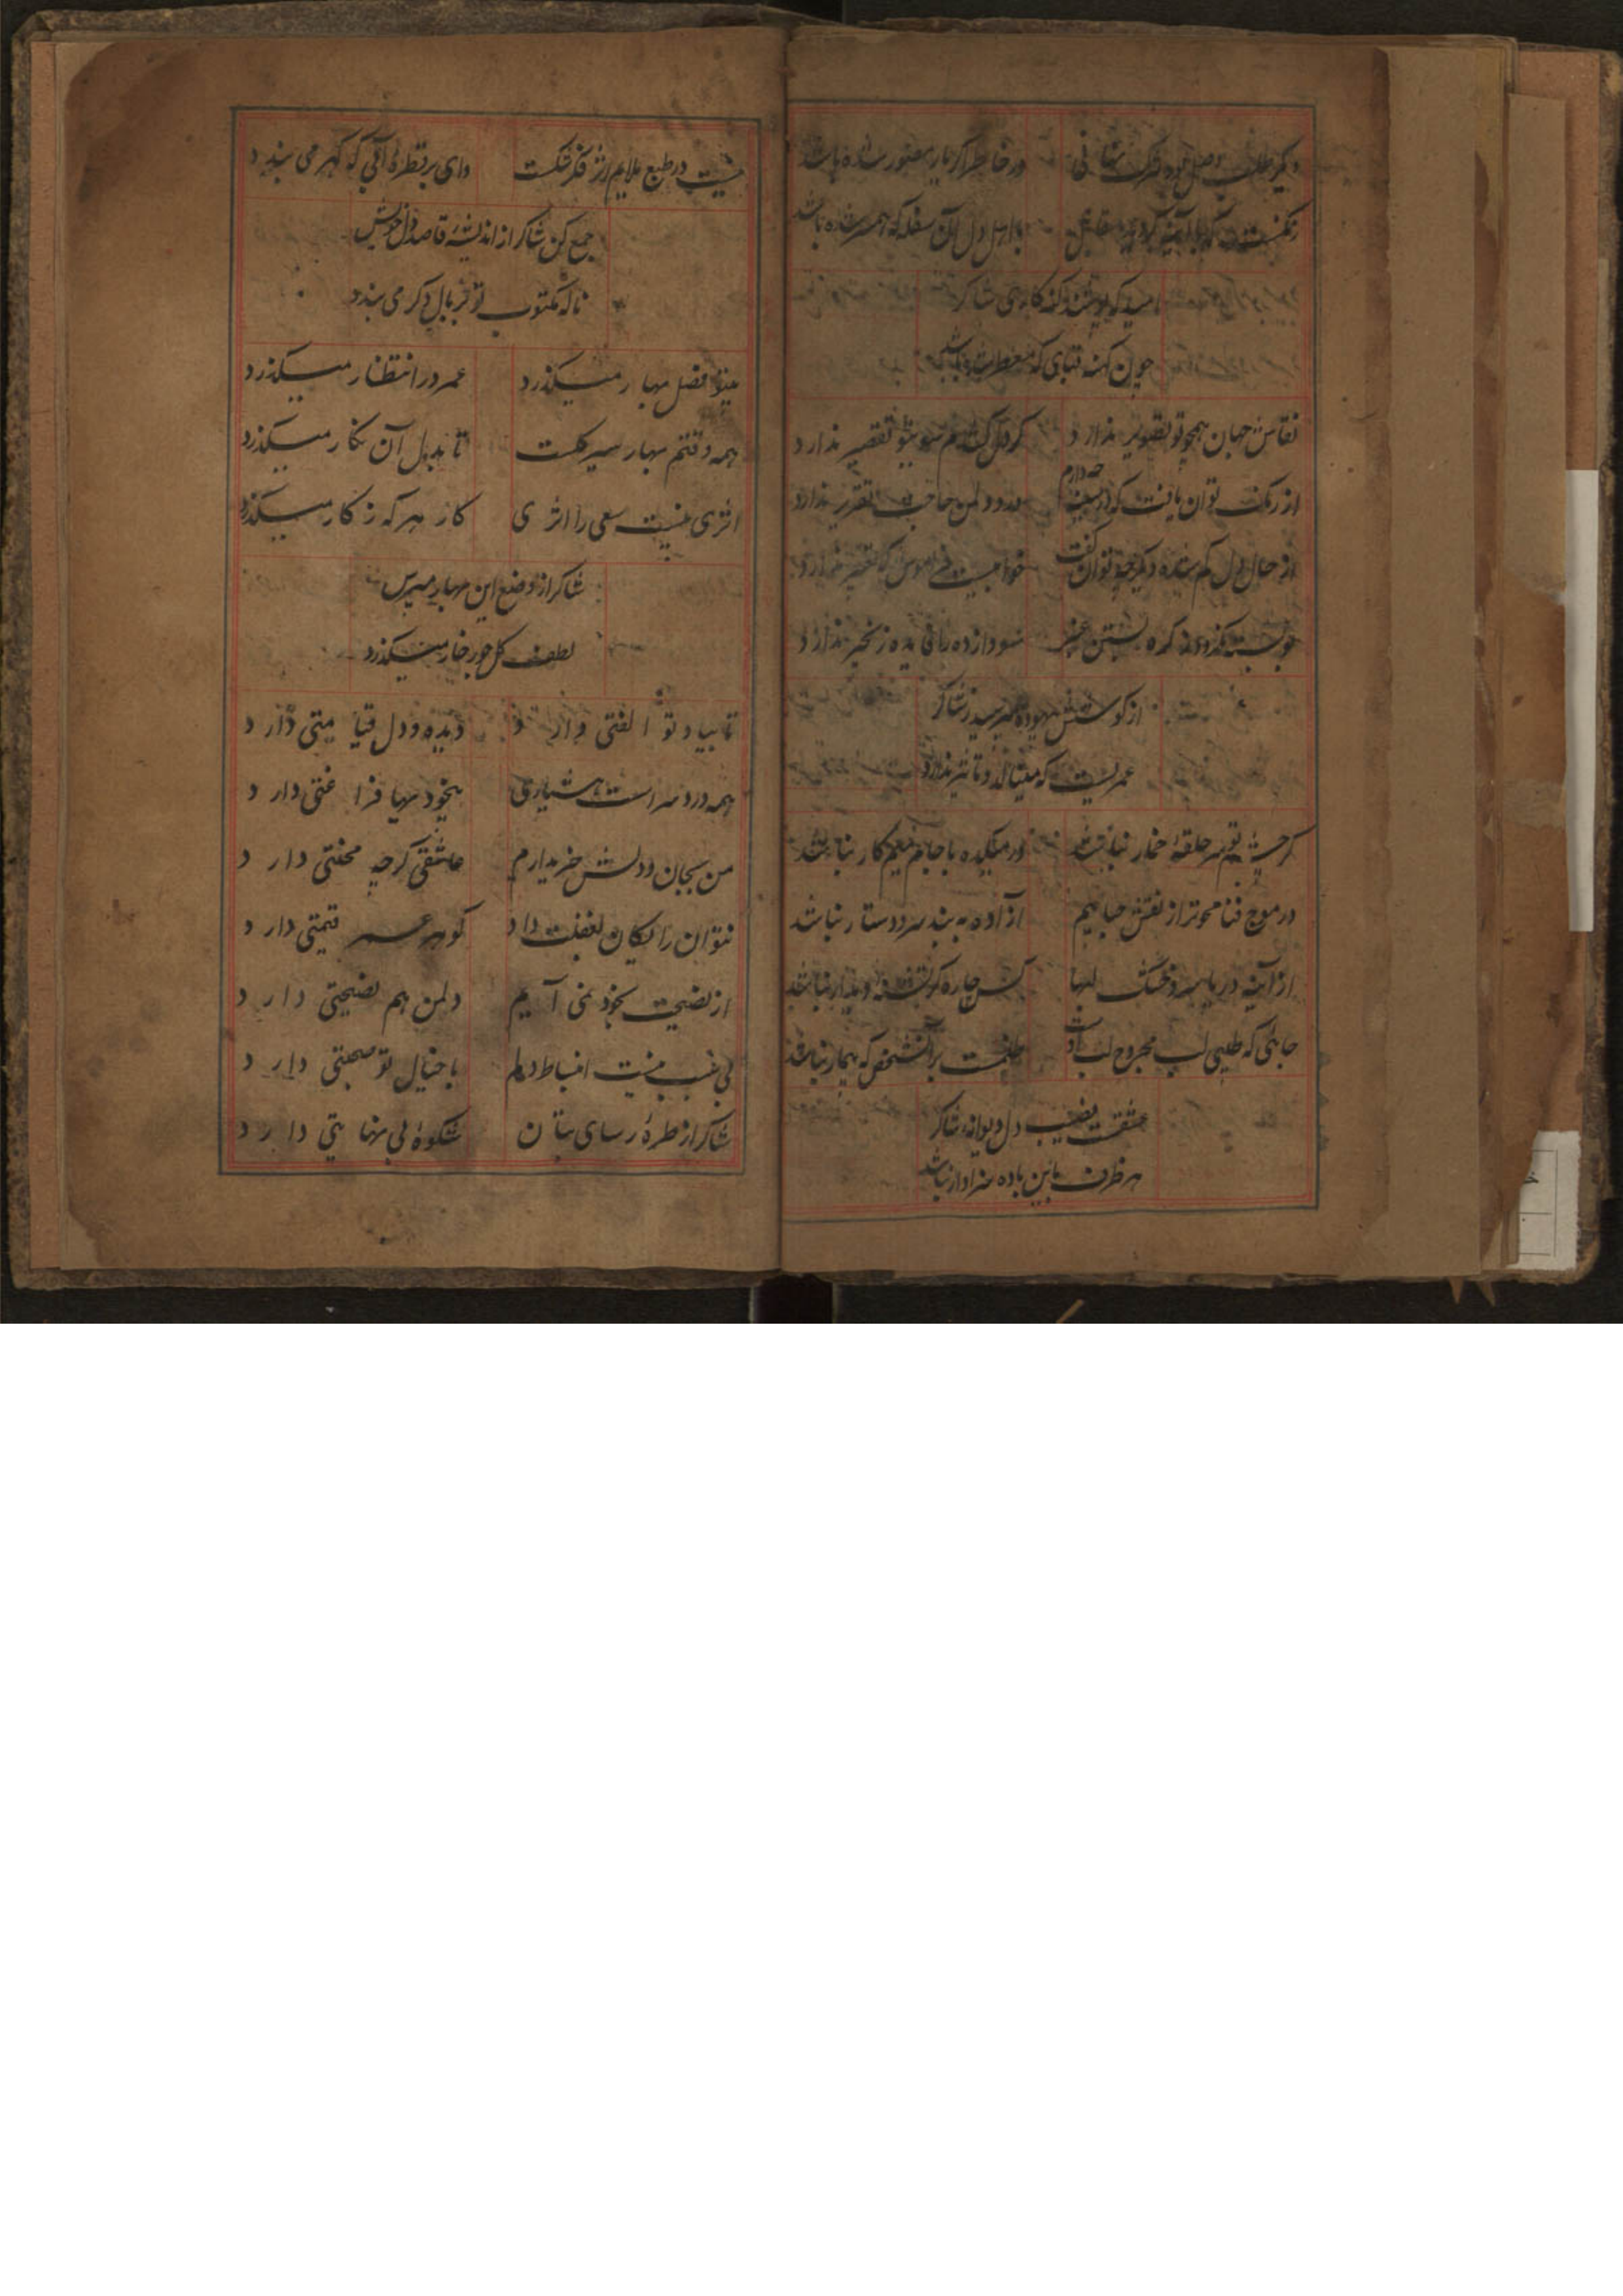 دیگر طلب وصل بود ترک تنها ئی در خاطر اگر یار تصور شده باشد
با اهل دل آن سفله که همسر شده باشد
امید که پوشند گنه کاری شاکر
چون کهنه قبای که معطر شده باشد
نقاش جهان همچو تو تصویر ندارد گر دل کشدم سوی تو تقصیر ندارد
از رنگ توان یافت که در سینه چه دارم درد دل من حاجت تقریر ندارد
از حال دل گم شده دیگر چه توان گفت خوابیست فراموش که تعبیر ندارد
سودا زده را فایده زنجیر ندارد
از کوشش بیهوده مپرسید ز شاکر
عمریست که مینالد و تاثیر ندارد
گر چشم تو سر حلقهٔ خمار نباشد در میکده با جام میم کار نباشد
در موج فنا محوتر از نقش حبابیم آزاده به بند سر و دستار نباشد
از آینه دریا سر و خشک لبها کس چاره گر تشنه دیدار نباشد
جائی که طبیبی لب مجروح لب باشد ظلمست بر آنشخص که بیمار نباشد
عشقت نصیب دل دیوانه شاکر
هر ظرف باین باده سزاوار نباشد
نیست در طبع ملایم اثر فکر شکست وای بر قطرهٔ آبی که گهر می بندد
جمع کن شاکر از اندیشهٔ قاصد دل خویش
ناله مکتوب تو بر بال دگر می بندد
بیتو فصل بهار میگذرد عمر در انتظار میگذرد
همه وقتم بهار سیر گلست تا بدل آن نگار میگذرد
اثری نیست سعی را اثری کار هر که ز کار میگذرد
شاکر از وضع این بهار مپرس
لطف گل جور خار میگذرد
تا بیاد تو الفتی دارد دیده و دل قیامتی دارد
همه درد سر است هشیاری بیخودیها فراغتی دارد
من بجان و دلش خریدارم عاشقی گرچه محنتی دارد
نتوان رایگان بغفلت داد گوهر عمر قیمتی دارد
از نصیحت بخود نمی آیم دلمن هم نصیحتی دارد
بی سبب نیست انبساط دلم با خیال تو صحبتی دارد
شاکر از طرهٔ رسای بتان شکوهٔ بی نهایتی دارد